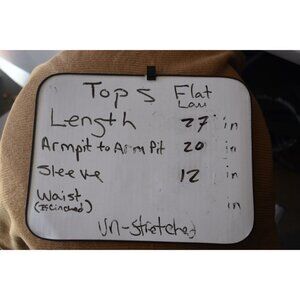 Tops Flat
Lay
Length 27 in
Armpit to Arm Pit 20 in
Sleeve 12 in
Waist in
(If Cinched)
Un-Stretched